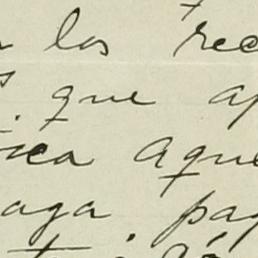 los rec
que ap
ica aque
aga pag